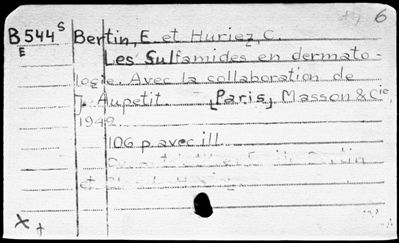 6
B544 S Bertin, E. et Huriez, C.
E
Les Sulfamides en dermato-
logie. Avec la collaboration de
J. Aupetit. [Paris], Masson & Cie,
1942.
106 p. avec ill.
et
X +